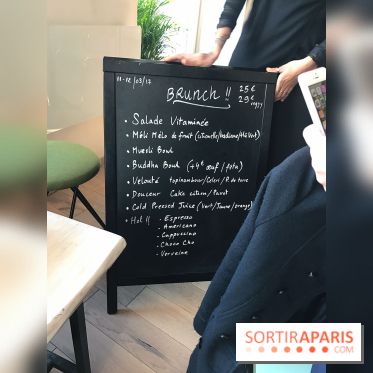 11-12/03/17
BRUNCH !!
25€
29€
• Salade Vitaminée
• Méli Mélo de fruit (citronelle/Badiane/thé Vert)
• Muesli Bowl
• Buddha Bowl (+4€ œuf / feta)
• Velouté topinambour/Céleri/P. de terre
• Douceur Cake citron/Pavot
• Cold Pressed Juice (Vert/Jaune/orange)
• Hot !!
- Espresso
- Americano
- Cappuccino
- Choco Cho
- Verveine
SORTIRAPARIS
.COM